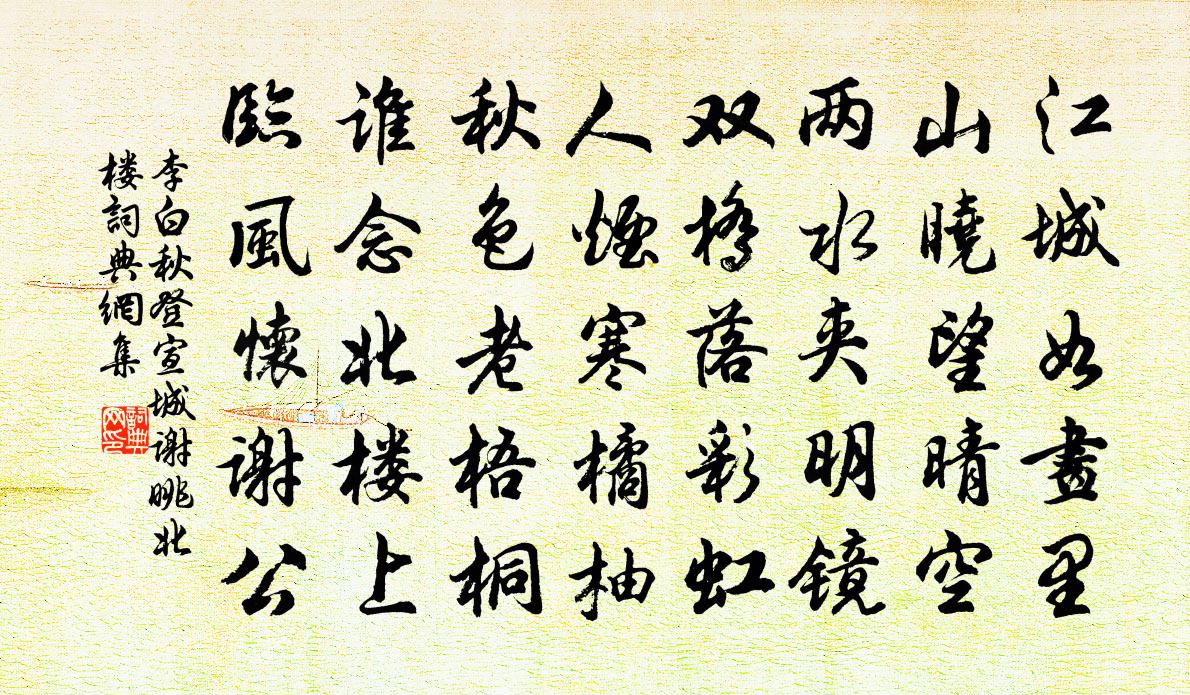 江城如畫里
山曉望晴空
两水夹明镜
双橋落彩虹
人煙寒橘柚
秋色老梧桐
谁念北楼上
臨風懷谢公
李白秋登宣城谢眺北
楼詞典網集
詞典
网印